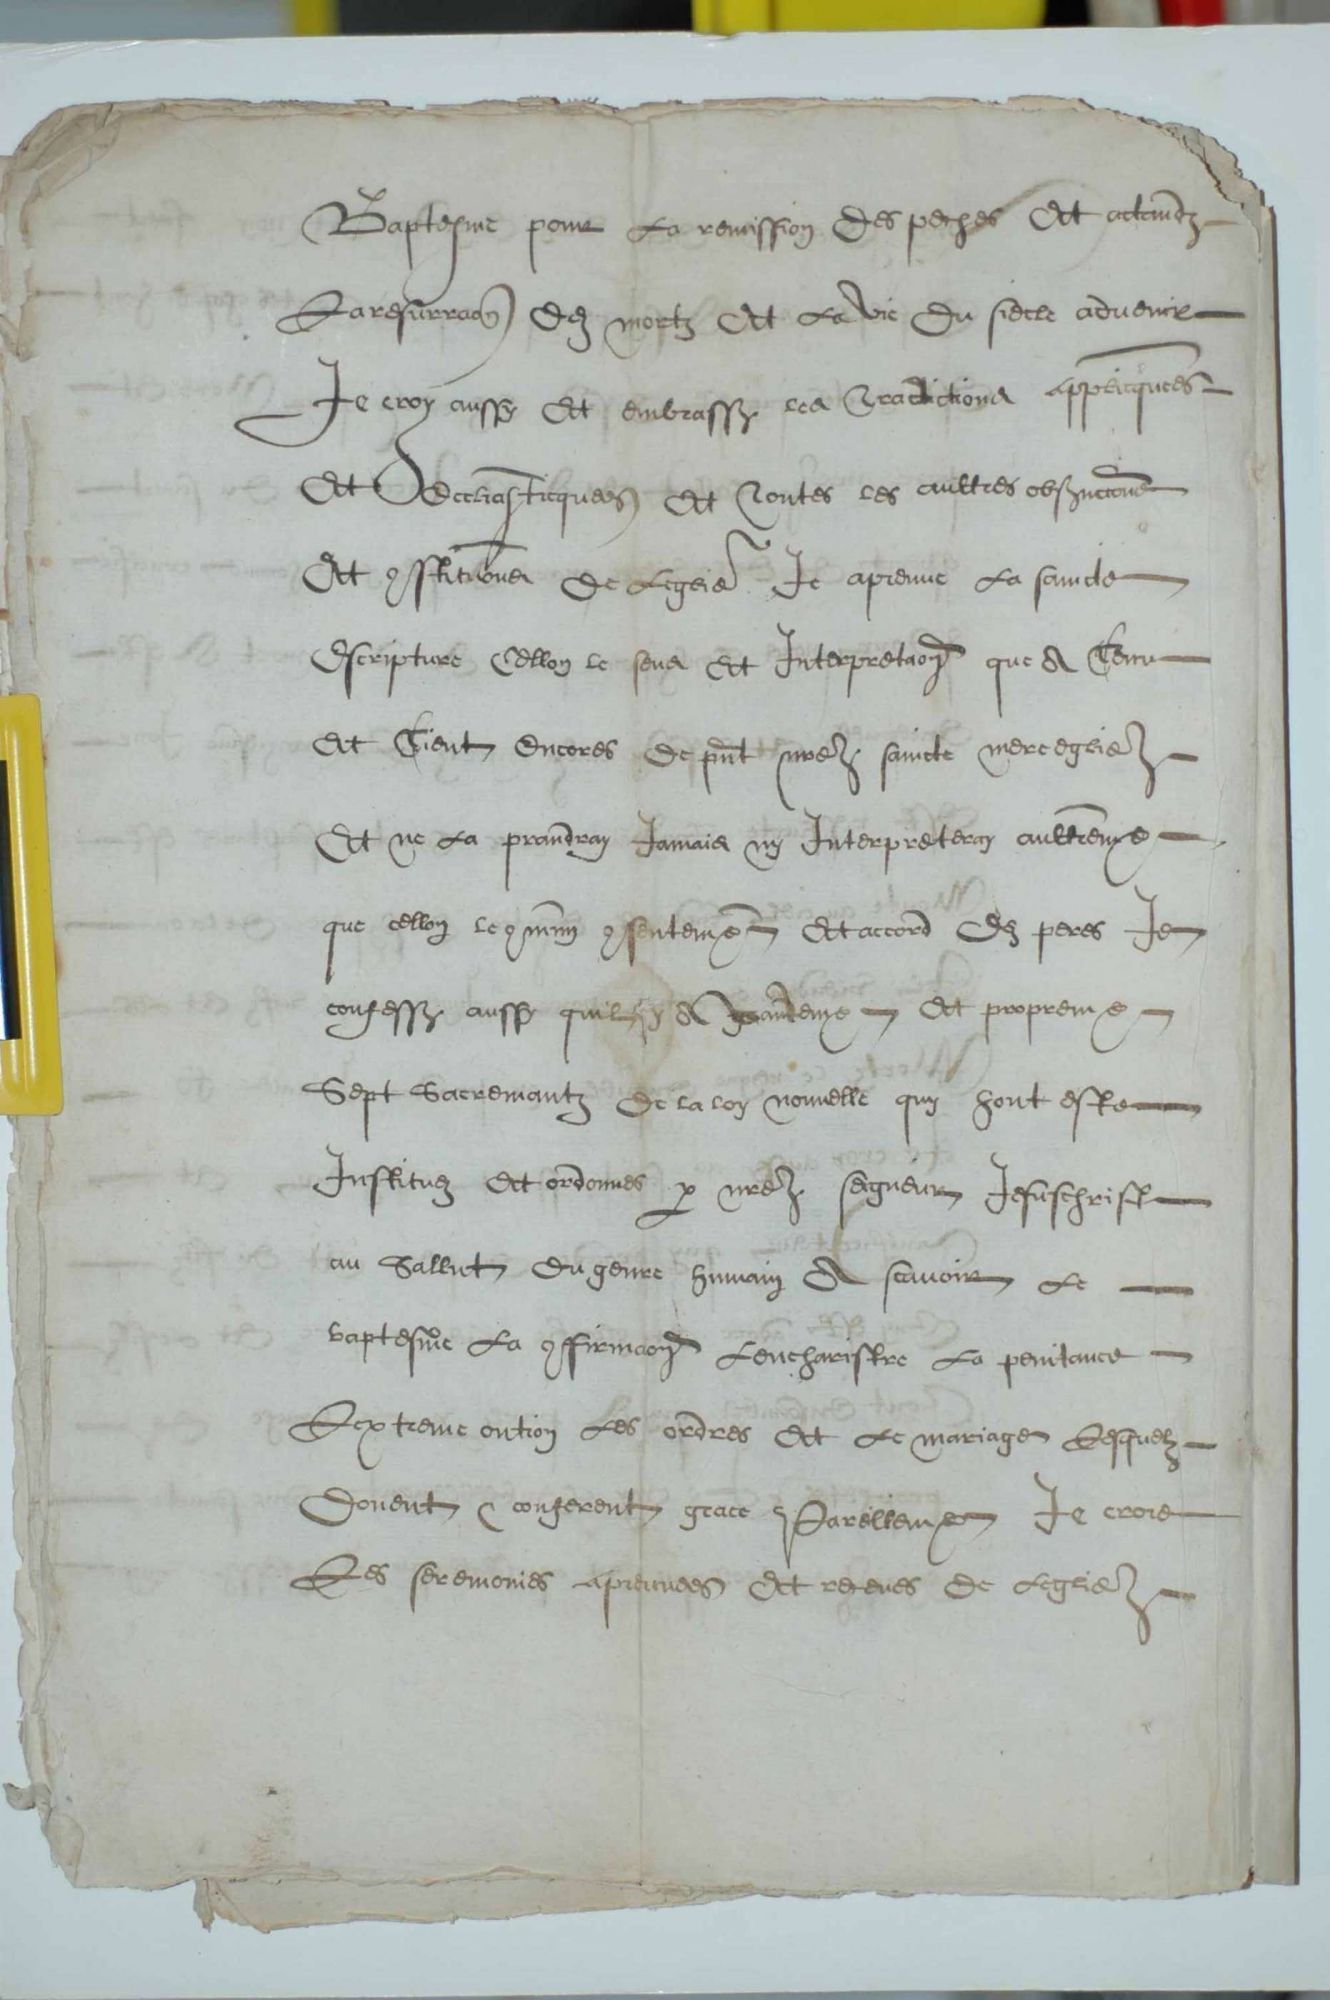 Baptesme pour La remission des peches Et actandz
La resurraon des mortz Et La vie du siecle advenir
Je croy aussy Et embrassy les Tradictions applicques
Et Eccliasticques Et Toutes les aultres observaons
Et 9stitutions de Leglise Je apreuve La saincte
Escripture cellon le sens Et Interpretaon que A Tenu
Et Tient Encores de pnt nre saincte mere eglise
Et ne La prandray Jamais ny Interpreteray aultreme
que cellon le 9mun 9senteme Et accord des peres Je
confessy aussy quil y A veme Et propreme
Sept Sacremantz de la loy nouvelle quy hont este
Instituez Et ordonnes p nre seigneur Jesuschrist
au Sallut du genre humain A scavoir Le
baptesme La 9firmaon Leucharistie La penitance
Lextreme ontion Les ordres Et Le mariage Lesquelz
Donent & conferent grace Pareilleme Je croie
Les seremonies apreuvees Et receues de Leglise